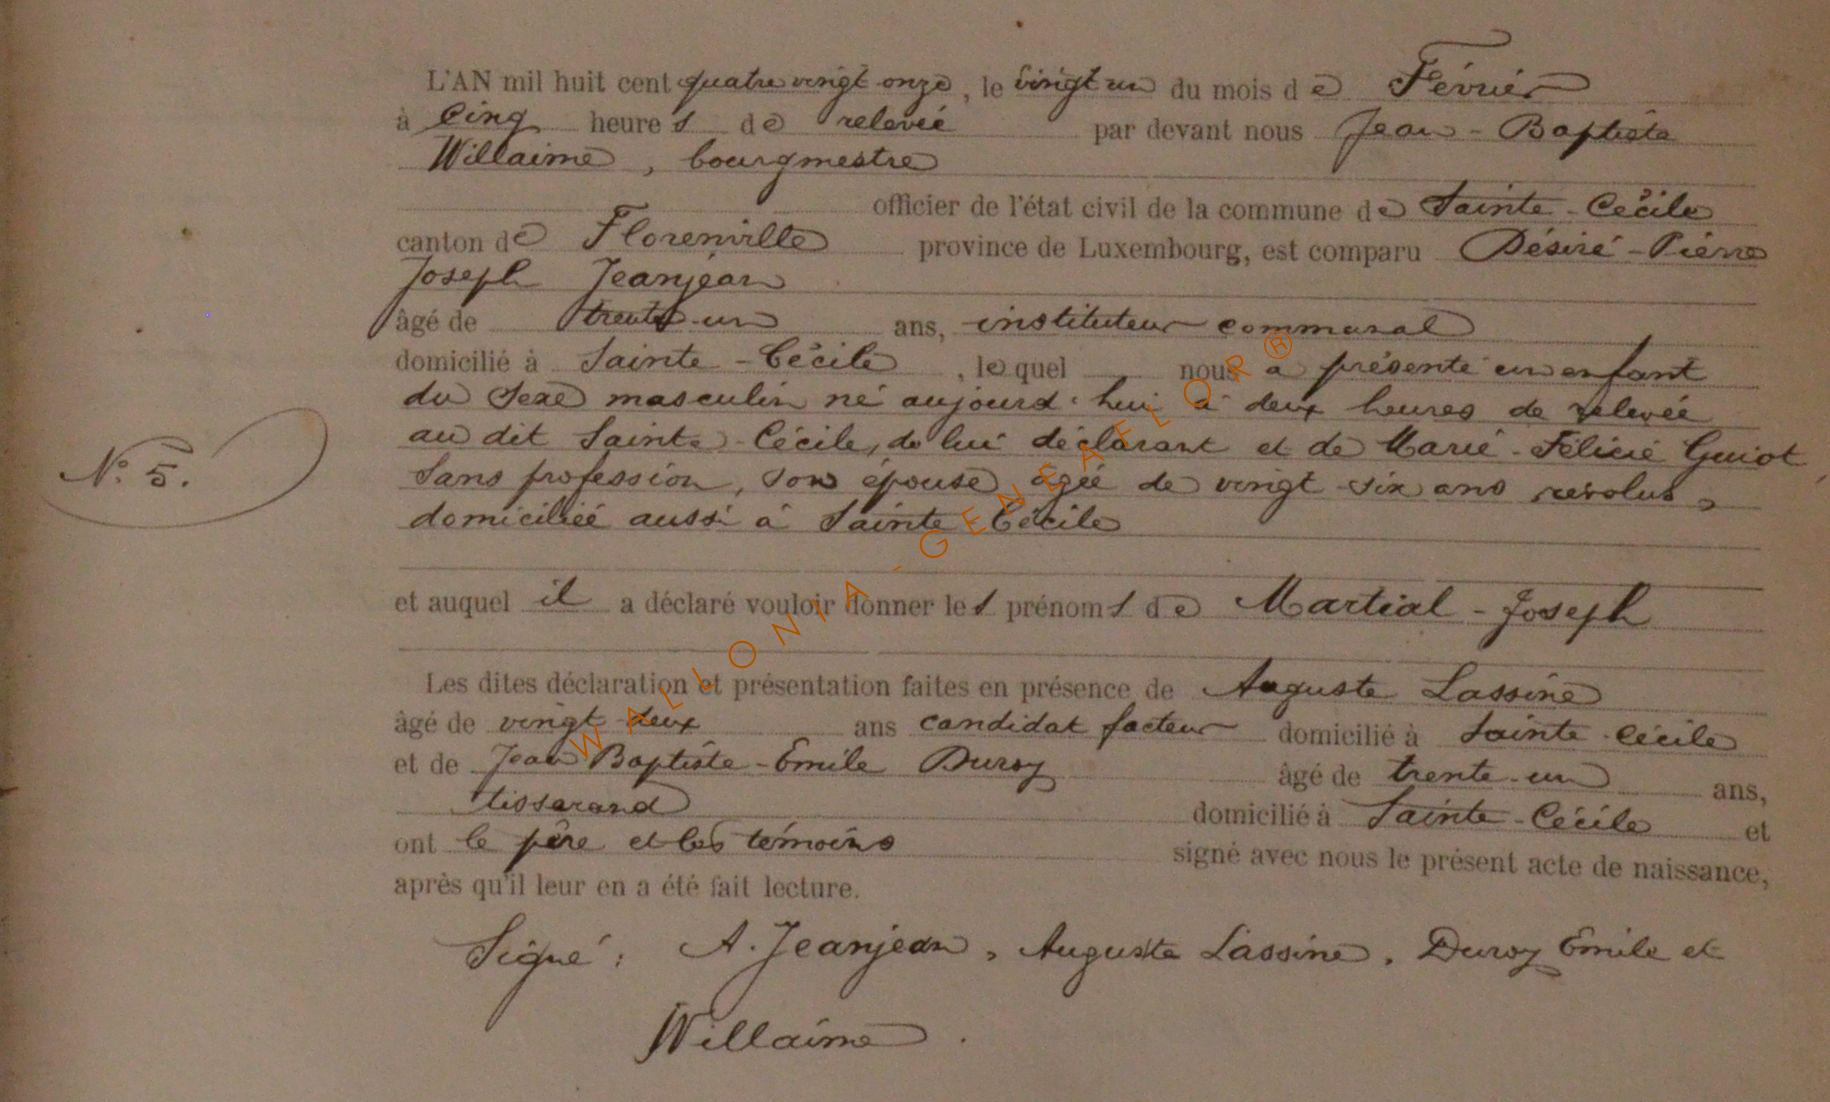 L'AN mil huit cent quatre vingt onze, le vingt un du mois de Février
à Cinq heures de relevée par devant nous Jean-Baptiste
Willaime, bourgmestre
officier de l'état civil de la commune de Sainte-Cécile
canton de Florenville province de Luxembourg, est comparu Désiré-Pierre
Joseph Jeanjean
âgé de trente-un ans, instituteur communal
domicilié à Sainte-Cécile, lequel nous a présenté un enfant
du Sexe masculin né aujourd'hui à deux heures de relevée
N° 5. au dit Sainte-Cécile, de lui déclarant et de Marie-Félicie Guiot
Sans profession, son épouse, âgée de vingt-six ans révolus,
domiciliée aussi à Sainte Cécile
et auquel il a déclaré vouloir donner les prénoms de Martial-Joseph
Les dites déclaration et présentation faites en présence de Auguste Lassine
âgé de vingt-deux ans candidat facteur domicilié à Sainte Cécile
et de Jean Baptiste-Emile Duroy âgé de trente-un ans,
tisserand domicilié à Sainte-Cécile et
ont le père et les témoins signé avec nous le présent acte de naissance,
après qu'il leur en a été fait lecture.
Signé: A. Jeanjean, Auguste Lassine, Duroy Emile et
Willaime.
WALLONIA-GENEAFLOR®